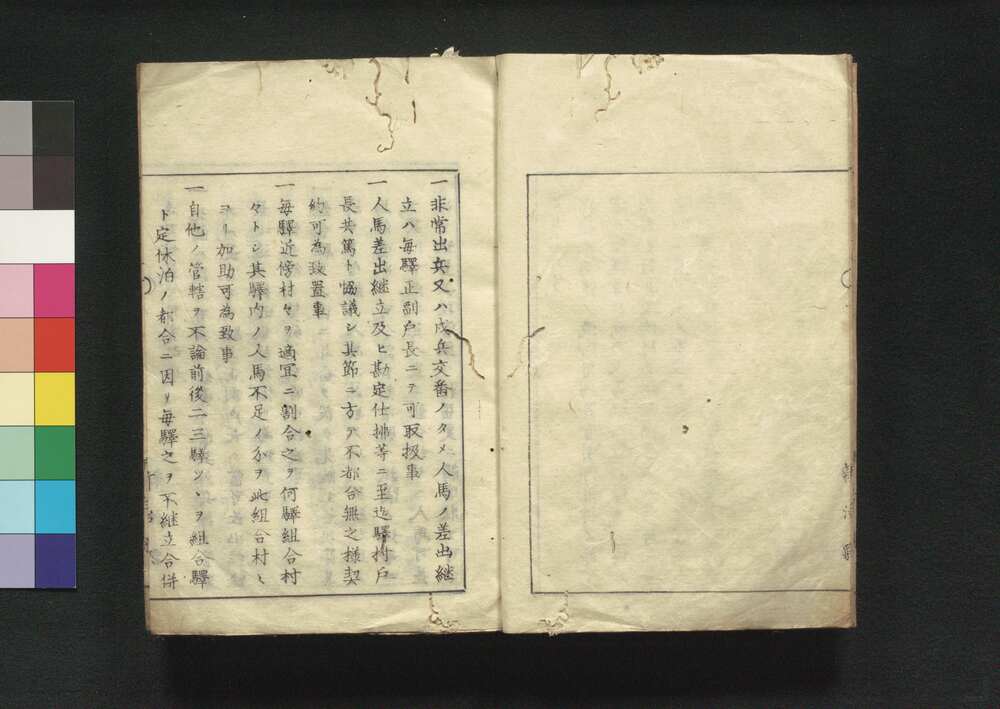 一非常出兵又ハ戍兵交番ノタメ人馬ノ差出継
立ハ毎驛正副戸長ニテ可取扱事
一人馬差出継立及ヒ勘定仕拂等ニ至迄驛村戸
長共篤ト協議シ其節ニ方テ不都合無之様契
約可為致置事
一毎驛近傍村々ヲ適宜ニ割合之ヲ何驛組合村
々トシ其驛内ノ人馬不足ノ分ヲ此組合村々
ヨリ加助可為致事
一自他ノ管轄ヲ不論前後二三驛ツヽヲ組合驛
ト定休泊ノ都合ニ因リ毎驛之ヲ不継立合併